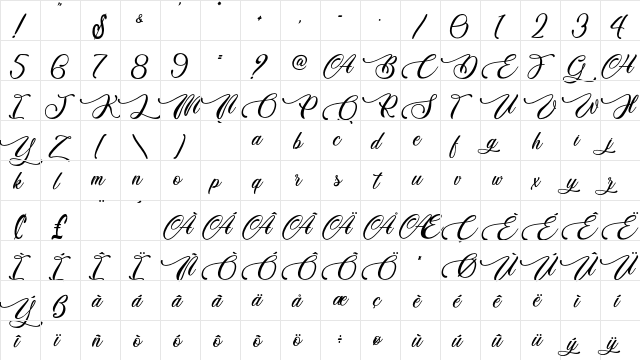 ! " $ & ' * + , - . / 0 1 2 3 4
5 6 7 8 9 : ? @ A B C D E F G H
I J K L M N O P Q R S T U V W X
Y Z ( \ ) a b c d e f g h i j
k l m n o p q r s t u v w x y z
¢ £ ¨ À Á Â Ã Ä Å Æ Ç È É Ê Ë
Ì Í Î Ï Ñ Ò Ó Ô Õ Ö Ø Ù Ú Û Ü
Ý ß à á â ã ä å æ ç è é ê ë ì í
î ï ñ ò ó ô õ ö ÷ ø ù ú û ü ý ÿ